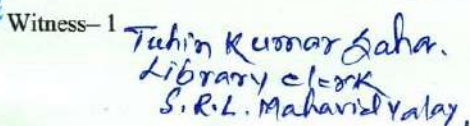 Witness– 1
Tuhin Kumar Saha.
Library clerk
S.R.L. Mahavidyalay.